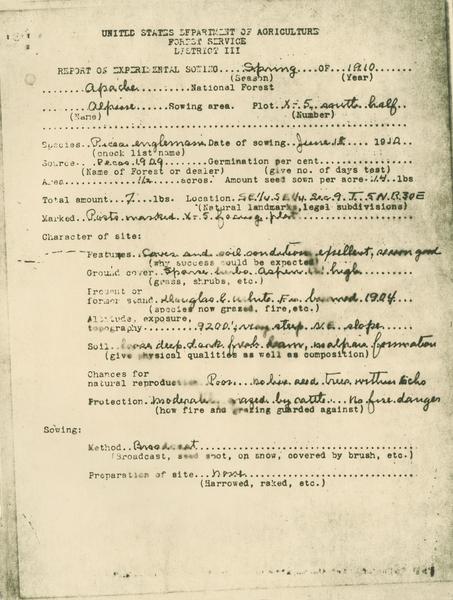 UNITED STATES DEPARTMENT OF AGRICULTURE
FOREST SERVICE
DISTRICT III
REPORT ON EXPERIMENTAL SOWING...Spring...OF...1910......
(Season) (Year)
......Apache..........National Forest
......Alpine......Sowing area. Plot. Xr. 5, south half
(Name) (Number)
Species..Picea englemani.Date of sowing..June 18..., 1910
(check list name)
Source...Pecos 1909...Germination per cent..............
(Name of Forest or dealer) (give no. of days test)
Area.....1/2.....acres. Amount seed sown per acre..14..lbs
Total amount..7...lbs. Location. SE 1/4 SE 1/4 Sec 9. T. 5 N R 30 E
(Natural landmarks, legal subdivisions)
Marked..Posts marked Xr 5 facing plot
Character of site:
Features..Cover and soil condition, season good
(why success could be expected)
Ground cover. Sparse Aspen high
(grass, shrubs, etc.)
Present or
former stand. Douglas & White Fir burned 1904...
(species now grazed, fire, etc.)
Altitude, exposure,
topography......9200' very steep N.E. slope
Soil..deep dark fresh loam, formation
(give physical qualities as well as composition)
Chances for
natural reproduction Poor... no live seed trees within
Protection. Moderately grazed by cattle... no fire danger
(how fire and grazing guarded against)
Sowing:
Method...Broadcast..............................
(Broadcast, seed spot, on snow, covered by brush, etc.)
Preparation of site...none......................
(Harrowed, raked, etc.)